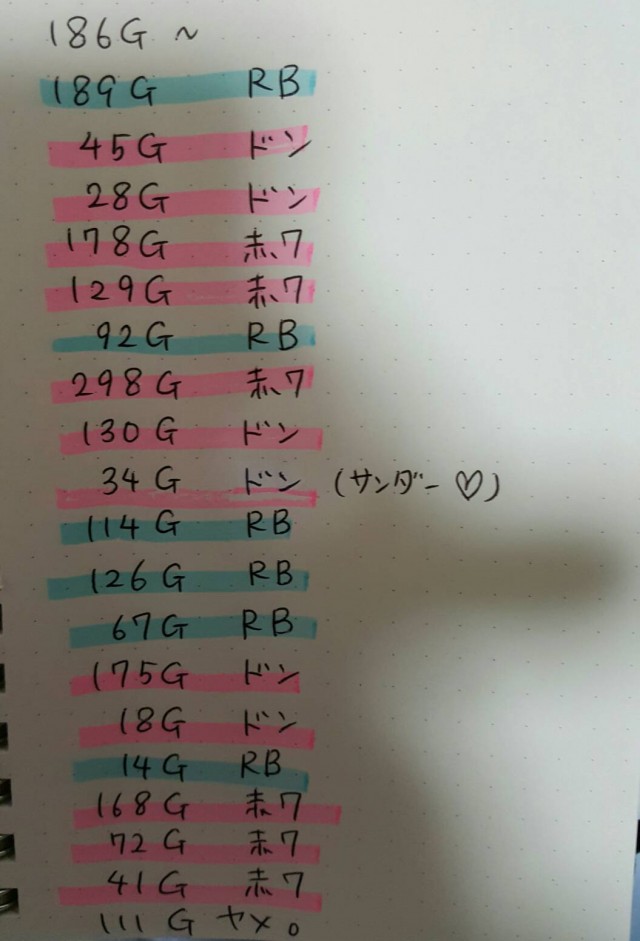 186G ~
189G RB
45G ドン
28G ドン
178G 赤7
129G 赤7
92G RB
298G 赤7
130G ドン
34G ドン (サンダー ♡)
114G RB
126G RB
67G RB
175G ドン
18G ドン
14G RB
168G 赤7
72G 赤7
41G 赤7
111G ヤメ。